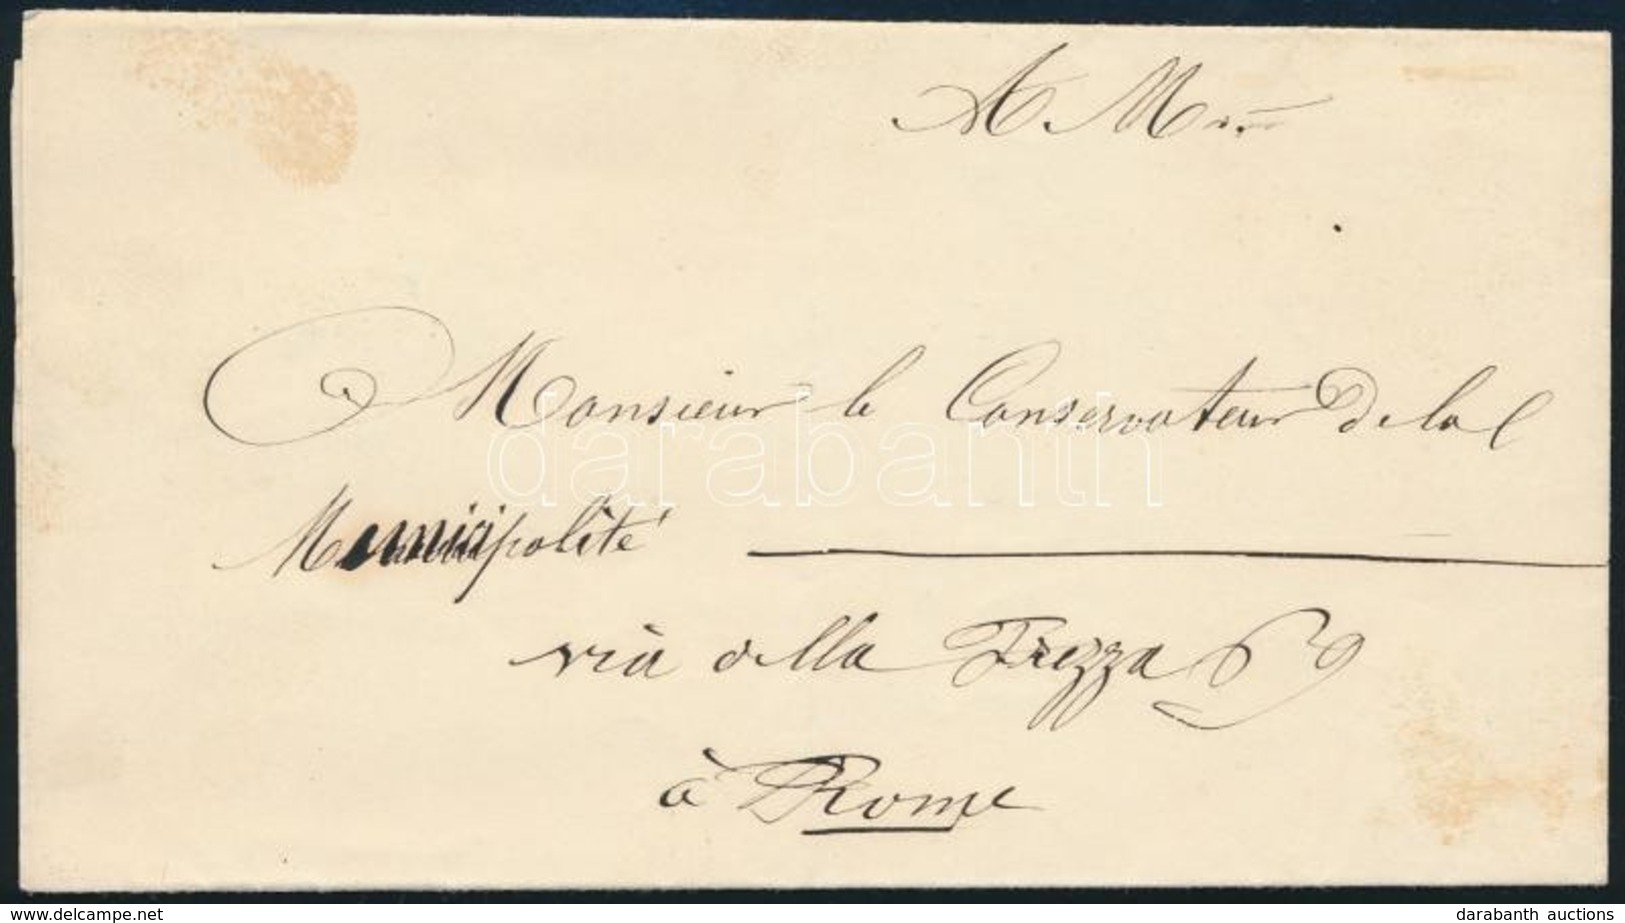 A M
Monsieur le Conservateur De la
Municipolité
via della Frezza 69
à Rome
darabanth
www.delcampe.net
darabanth auctions